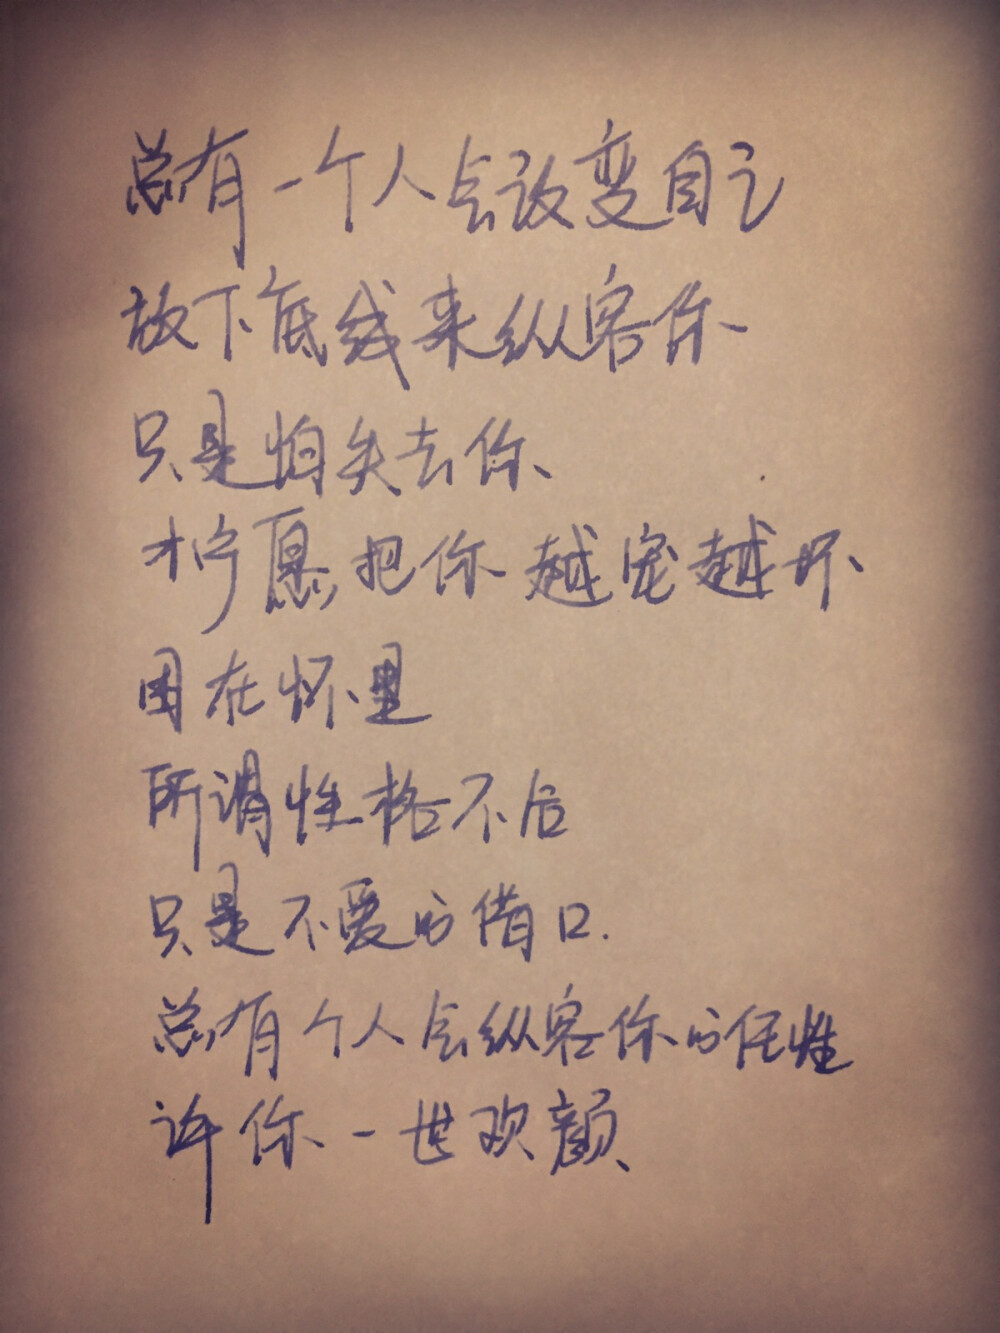 总有一个人会改变自己
放下底线来纵容你
只是怕失去你、
才宁愿把你越宠越坏
困在怀里
所谓性格不合
只是不爱的借口.
总有个人会纵容你的任性
许你一世欢颜、